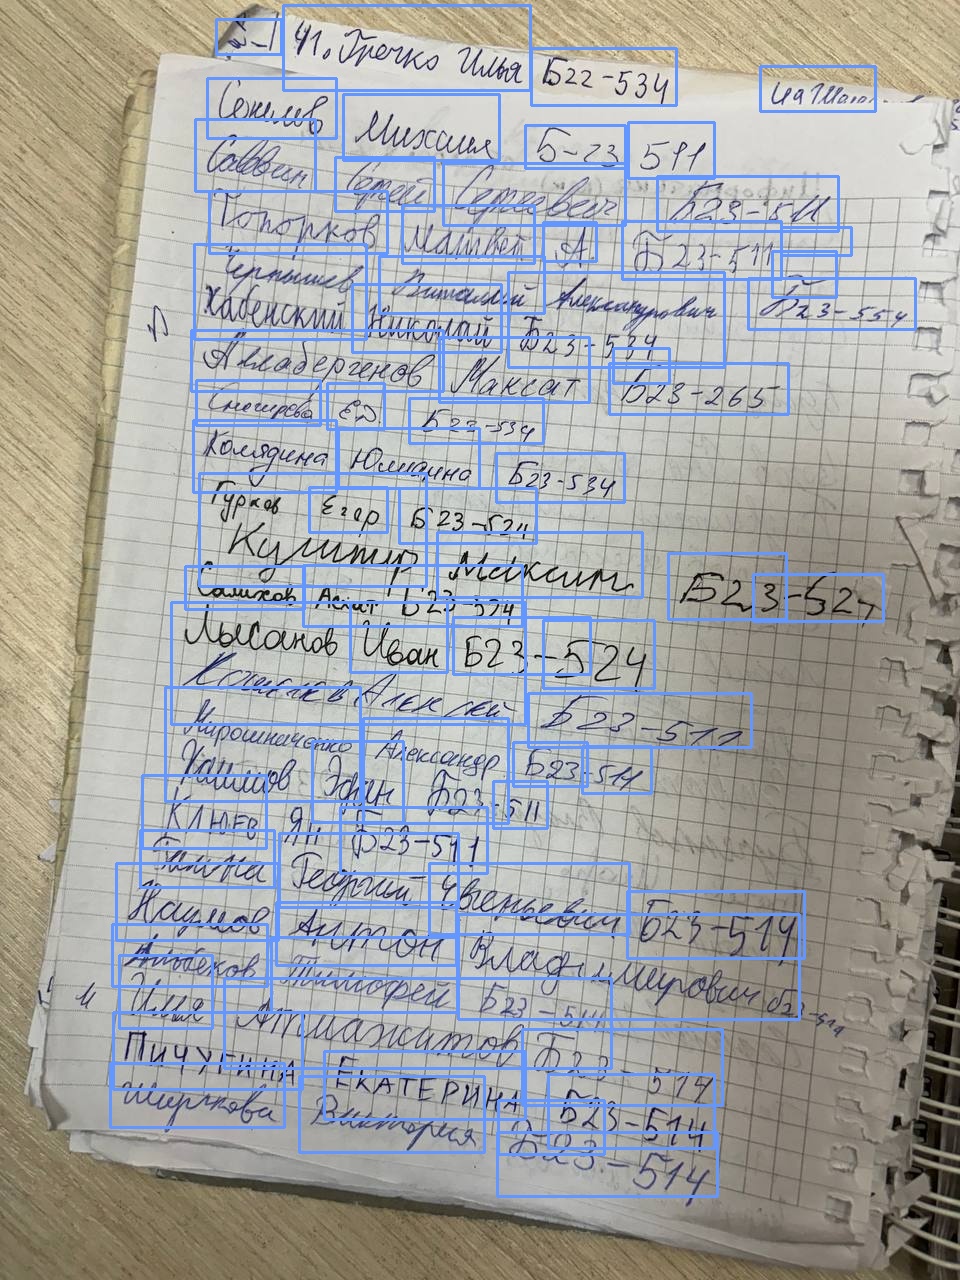 41. Гречко Илья Б22-534
Михаил Б-23 511
Саввин Сергей Сергеевич Б23-511
Топорков Матвей А. Б23-511
Чернышев Виталий Александрович Б23-554
Хабенский Николай Б23-534
Аллабергенов Максат Б23-265
Снегирева Е.D. Б22-534
Колядина Юлиана Б23-534
Гурков Егор Б23-524
Кушнир Максим Б23-524
Салихов Б23-534
Лысанов Иван Б23-524
Алексей Б23-511
Мирошниченко Александр Б23-514
Эфин Б23-511
Клюев Ян Б23-511
Георгий Евгеньевич Б23-514
Наумов Антон Владимирович Б23-514
Тимофей Б23-514
Илья Атмажитов Б23-514
ПИЧУГИНА ЕКАТЕРИНА Б23-514
Ширкова Виктория Б23-514